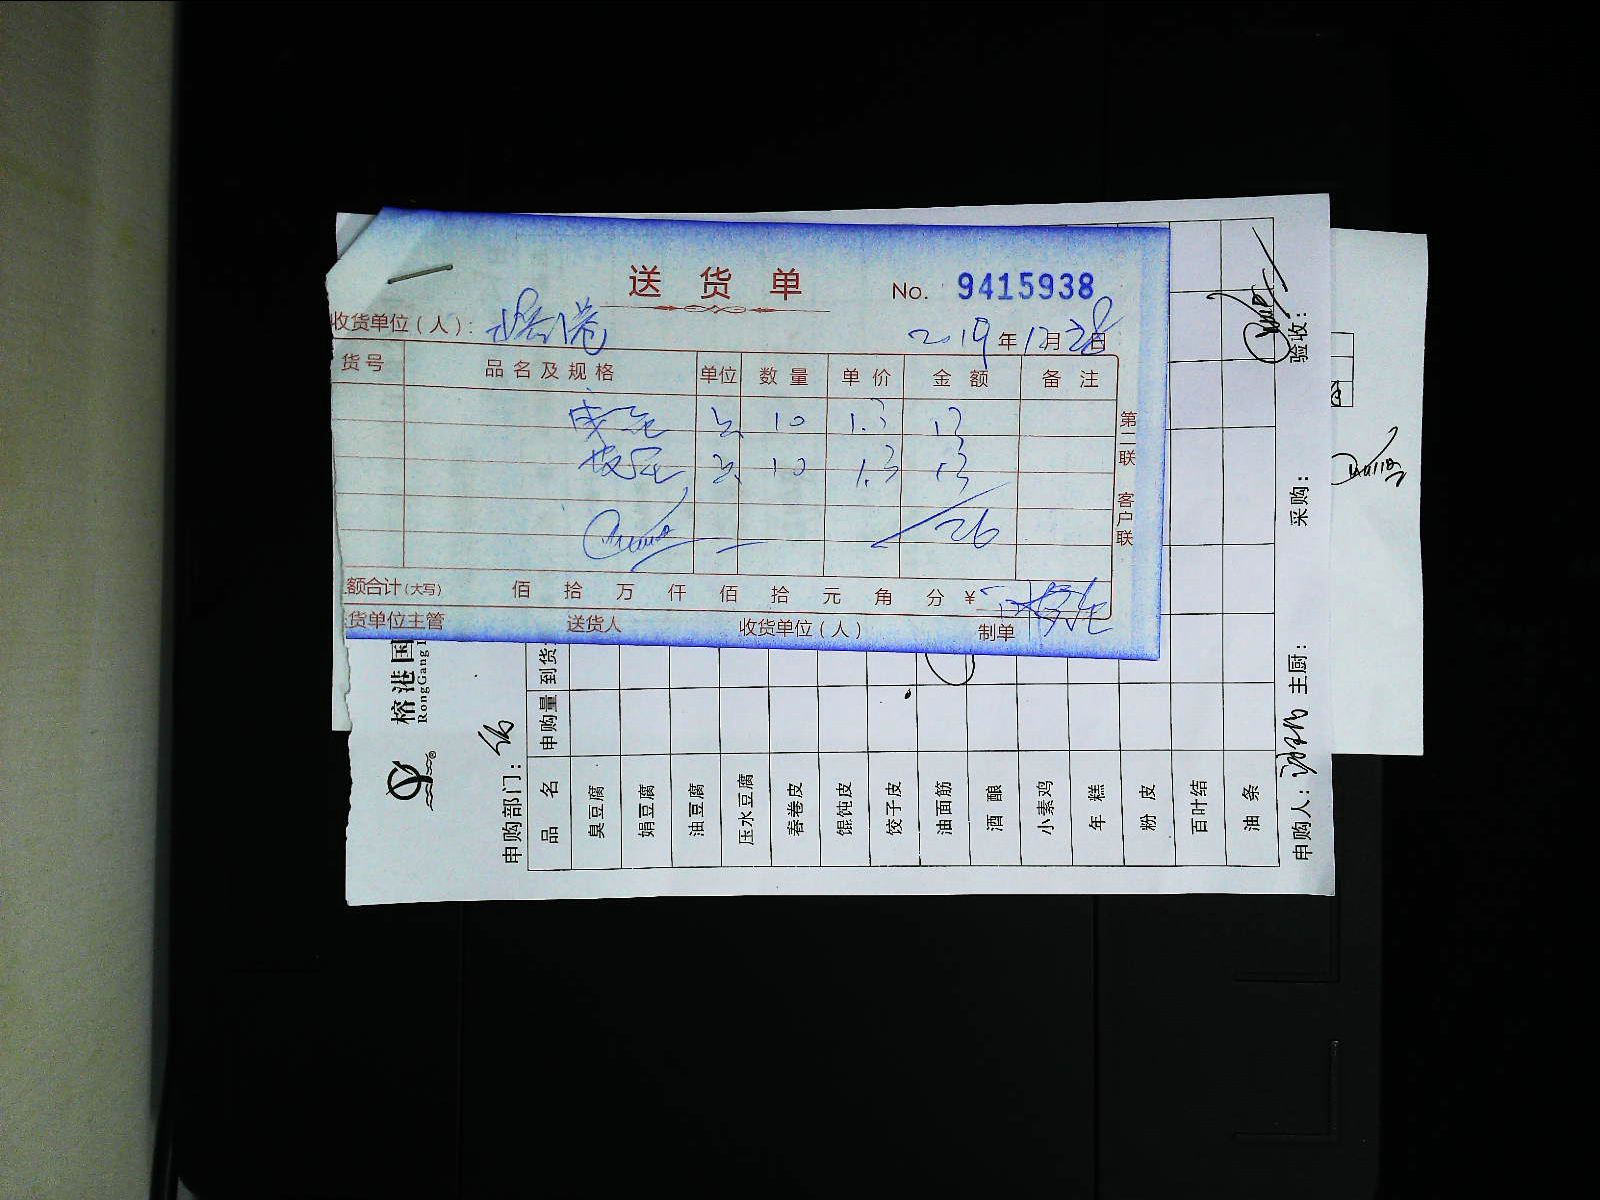 送货单
No. 9415938
收货单位(人): 榕港
2019年12月28日
货号 品名及规格 单位 数量 单价 金额 备注
10 1.3 13
10 1.3 13
26
第二联 客户联
额合计(大写) 佰 拾 万 仟 佰 拾 元 角 分 ¥
货单位主管 送货人 收货单位(人) 制单
榕港国
RongGang
申购部门:
品名 申购量 到货
臭豆腐
娟豆腐
油豆腐
压水豆腐
春卷皮
馄饨皮
饺子皮
油面筋
酒酿
小素鸡
年糕
粉皮
百叶结
油条
申购人: 主厨: 采购: 验收: